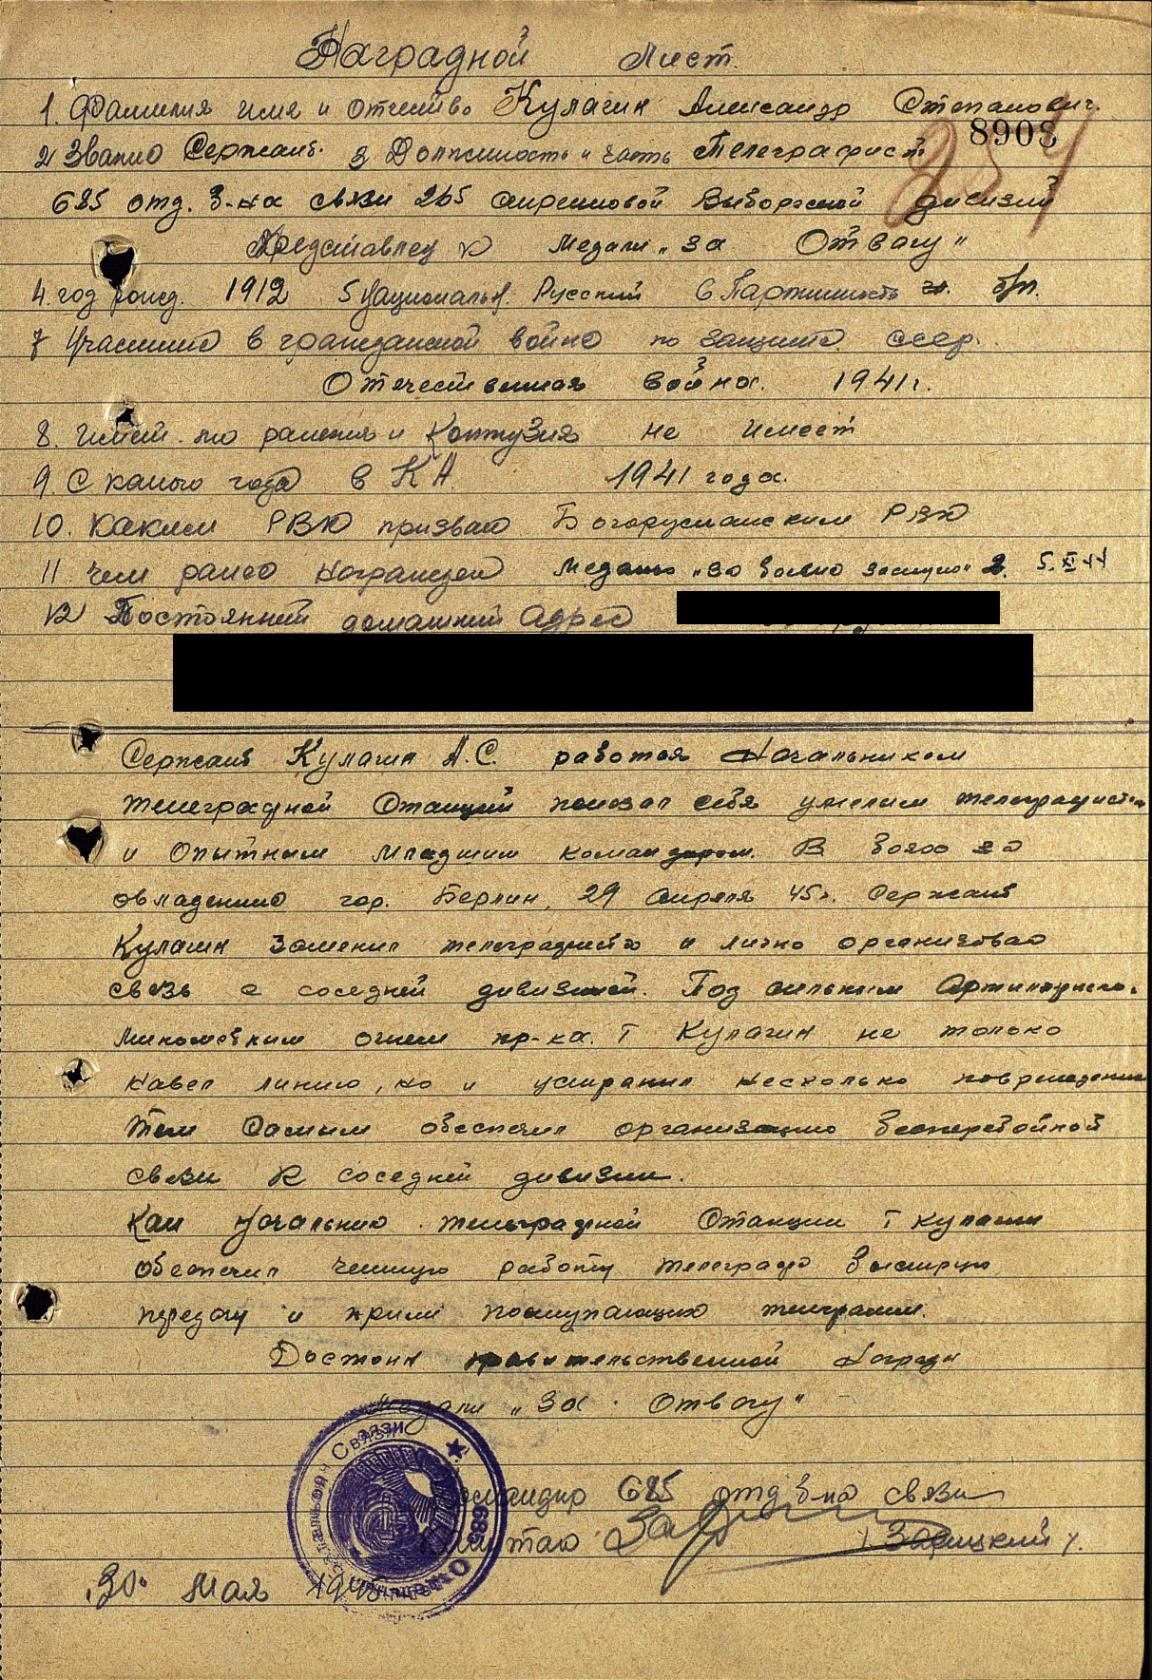 Наградной Лист.
1. Фамилия имя и отчество Кулагин Александр Степанович.
8903
2 Звание Сержант. 3 Должность и часть Телеграфист
685 отд. б-на связи 265 стрелковой Выборгской дивизии
Представлен к медали „За Отвагу"
4. год рожд. 1912 5 Национальн. Русский 6 Партийность б/п.
7 Участие в гражданской войне по защите ссср.
Отечественная война. 1941г.
8. Имеет ли ранения и контузия не имеет
9. С какого года в КА 1941 года.
10. Каким РВК призван Богорусланским РВК
11 Чем ранее награжден медалью „за боевые заслуги" 5.XI 44
12 Постоянный домашний адрес
Сержант Кулагин А.С. работая Начальником
телеграфной Станции показал себя умелым телеграфистом
и опытным младшим командиром. В боях за
овладение гор. Берлин, 29 апреля 45г. Сержант
Кулагин заменил телеграфиста и лично организовал
связь с соседней дивизией. Под сильным Артиллерийско.
Минометным огнем пр-ка. Т Кулагин не только
навел линию, но и устранил несколько повреждений
Тем самым обеспечил организацию бесперебойной
связи к соседней дивизии.
Как Начальник телеграфной Станции Т Кулагин
обеспечил четкую работу телеграфа быструю
передачу и прием поступающих телеграмм.
Достоин правительственной Награды
Медали „За Отвагу"
Командир 685 отд б-на связи
Капитан Зарицкий
30. Мая 1945
685 Связи